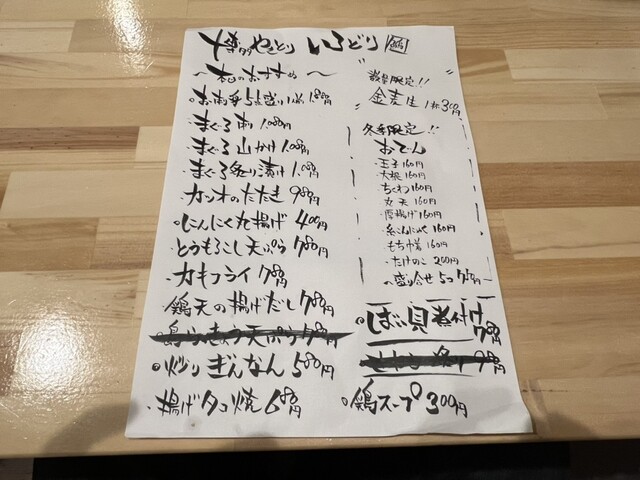 博多やきとり いろどり
〜本日のおすすめ〜
・お刺身5点盛り 1.80円
・まぐろ刺 1.080円
・まぐろ山かけ 1.080円
・まぐろ炙り漬け 1.080円
・カツオのたたき 980円
・にんにく丸揚げ 400円
・とうもろこし天ぷら 780円
・カキフライ 780円
鶏天の揚げだし 780円
・炒りぎんなん 580円
・揚げタコ焼 680円
数量限定!!
金麦生 1杯300円
冬季限定!!
おでん
・玉子 160円
・大根 160円
・ちくわ 160円
・丸天 160円
・厚揚げ 160円
・糸こんにゃく 160円
・もち巾着 160円
・たけのこ 200円
〜盛り合せ5コ 750円〜
・ばい貝煮付け 780円
・鶏スープ 300円